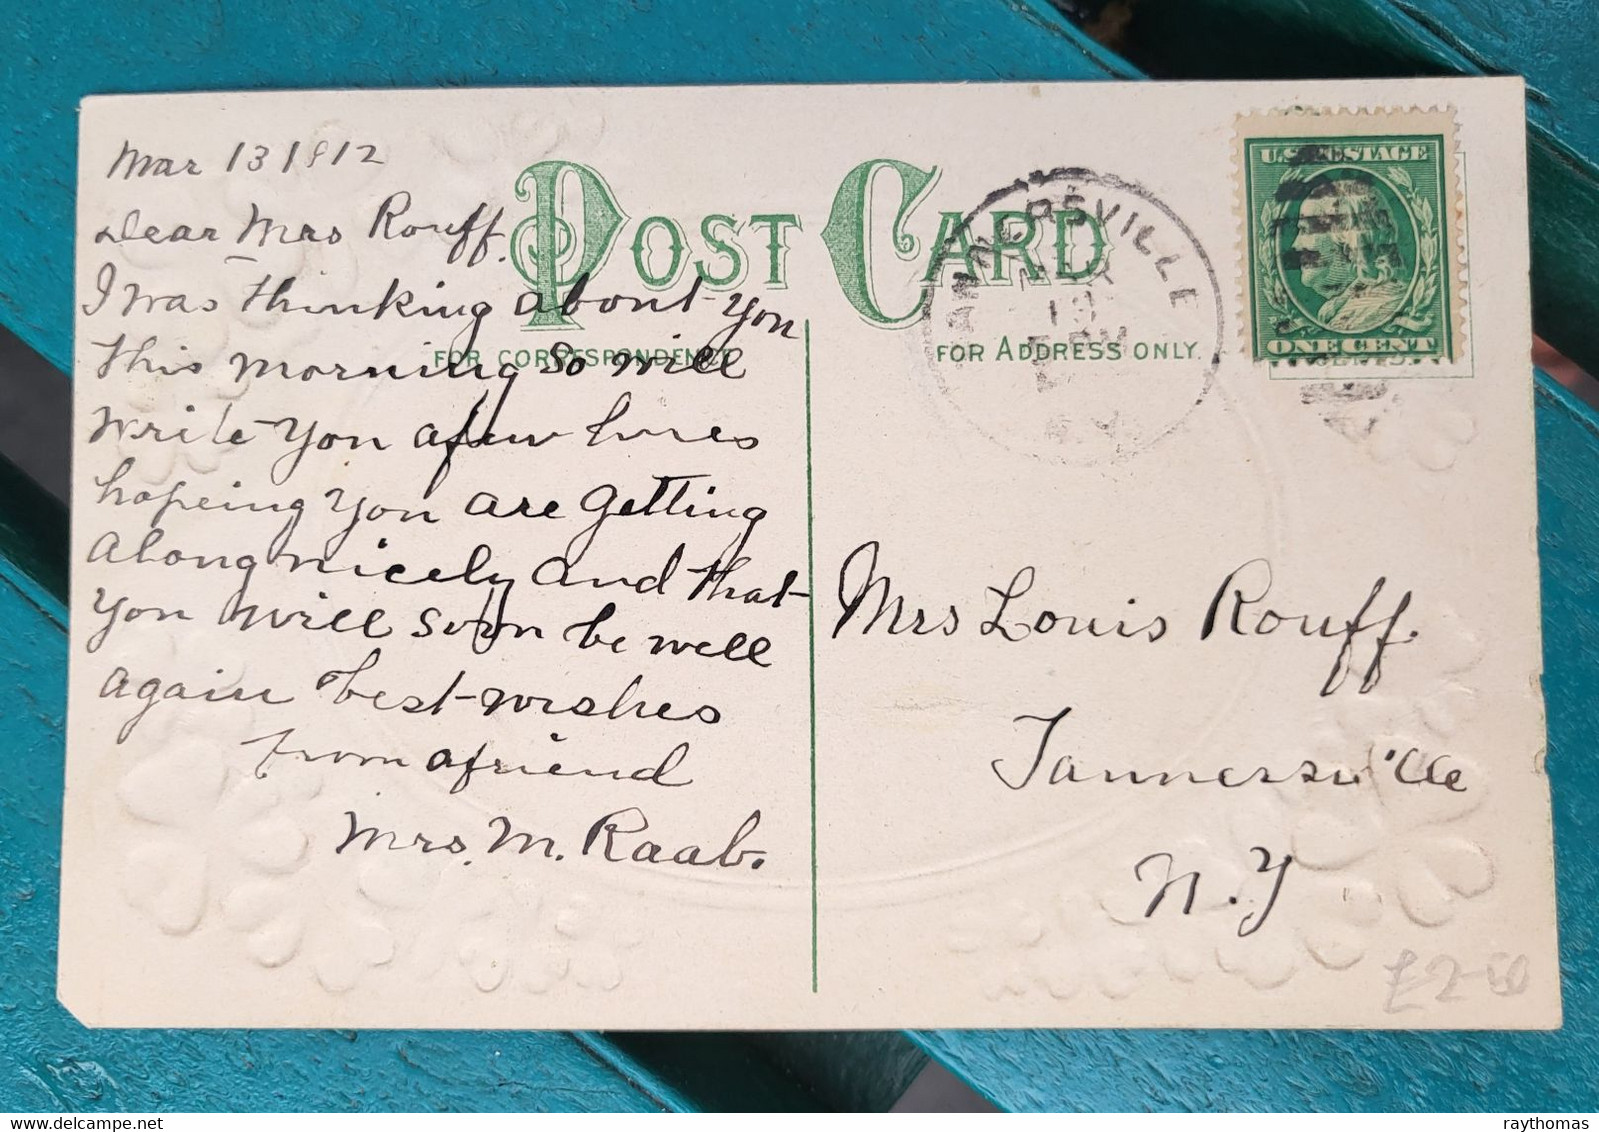 Mar 13 1912
Dear Mrs Rouff.
I was thinking about you
this morning so will
write you a few lines
hopeing you are getting
along nicely and that
you will soon be well
again best wishes
from a friend
Mrs. M. Raab.
POST CARD
FOR CORRESPONDENCE
FOR ADDRESS ONLY.
TANNERSVILLE
13
U.S. POSTAGE
ONE CENT
Mrs Louis Rouff.
Tannersville
N.Y
£2-50
raythomas